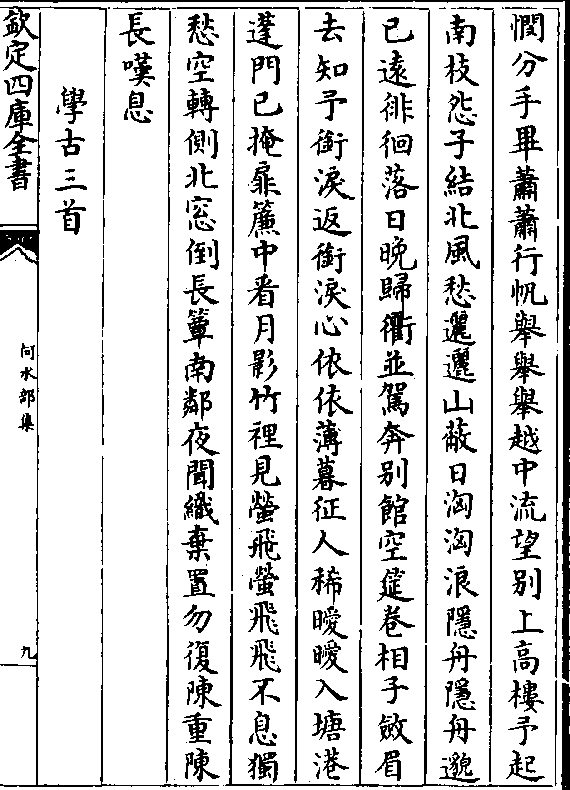 憫分手畢蕭蕭行帆舉舉舉越中流望别上高樓予起
南枝怨子結北風愁邐邐山蔽日洶洶浪隱舟隱舟邈
已遠徘徊落日晚歸衢並駕奔别館空筵卷相子斂眉
去知予銜淚返銜淚心依依薄暮征人稀曖曖入塘港
蓬門已掩扉簾中看月影竹裡見螢飛螢飛飛不息獨
愁空轉側北窓倒長簟南鄰夜聞織棄置勿復陳重陳
長嘆息
學古三首
欽定四庫全書
何水部集
九